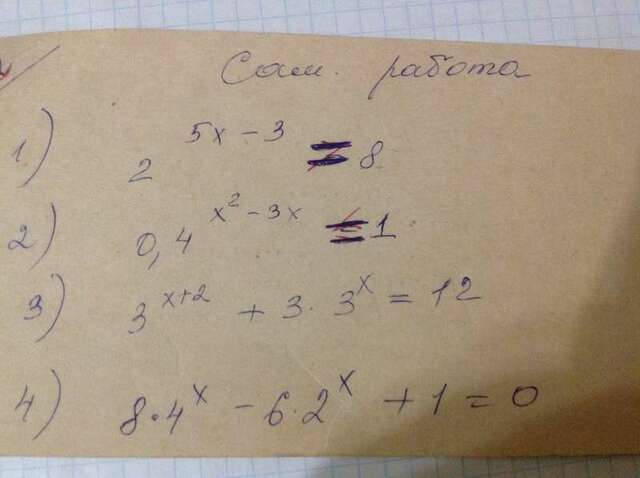 Сам. работа
1) 2^(5x-3) = 8
2) 0,4^(x²-3x) = 1
3) 3^(x+2) + 3·3^x = 12
4) 8·4^x - 6·2^x + 1 = 0